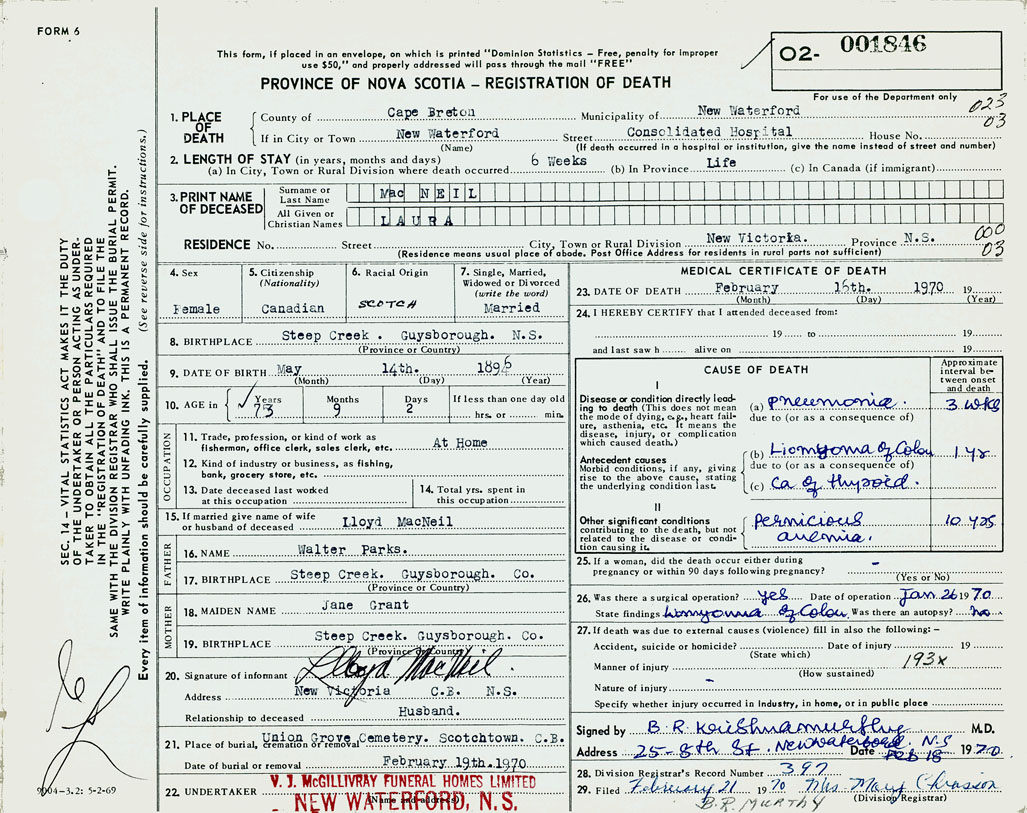 FORM 6
This form, if placed in an envelope, on which is printed "Dominion Statistics – Free, penalty for improper
use $50," and properly addressed will pass through the mail "FREE"
PROVINCE OF NOVA SCOTIA – REGISTRATION OF DEATH
02- 001846
For use of the Department only
023
03
1. PLACE OF DEATH County of Cape Breton Municipality of New Waterford
If in City or Town New Waterford Street Consolidated Hospital House No.
(Name) (If death occurred in a hospital or institution, give the name instead of street and number)
2. LENGTH OF STAY (in years, months and days)
(a) In City, Town or Rural Division where death occurred 6 Weeks (b) In Province Life (c) In Canada (if immigrant)
3. PRINT NAME OF DECEASED
Surname or Last Name Mac NEIL
All Given or Christian Names LAURA
RESIDENCE No. Street City, Town or Rural Division New Victoria. Province N.S.
000
03
(Residence means usual place of abode. Post Office Address for residents in rural parts not sufficient)
4. Sex Female
5. Citizenship (Nationality) Canadian
6. Racial Origin SCOTCH
7. Single, Married, Widowed or Divorced (write the word) Married
8. BIRTHPLACE Steep Creek . Guysborough. N.S.
(Province or Country)
9. DATE OF BIRTH May 14th. 1896
(Month) (Day) (Year)
10. AGE in Years 73 Months 9 Days 2 If less than one day old
hrs. or min.
OCCUPATION
11. Trade, profession, or kind of work as
fisherman, office clerk, sales clerk, etc. At Home
12. Kind of industry or business, as fishing,
bank, grocery store, etc.
13. Date deceased last worked
at this occupation
14. Total yrs. spent in
this occupation
15. If married give name of wife
or husband of deceased Lloyd MacNeil
FATHER
16. NAME Walter Parks.
17. BIRTHPLACE Steep Creek. Guysborough. Co.
(Province or Country)
MOTHER
18. MAIDEN NAME Jane Grant
19. BIRTHPLACE Steep Creek. Guysborough. Co.
(Province or Country)
20. Signature of informant Lloyd MacNeil.
Address New Victoria C.B. N.S.
Relationship to deceased Husband.
21. Place of burial, cremation or removal Union Grove Cemetery. Scotchtown. C.B.
Date of burial or removal February 19th.1970
22. UNDERTAKER V. J. McGILLIVRAY FUNERAL HOMES LIMITED
NEW WATERFORD, N.S.
(Name and address)
MEDICAL CERTIFICATE OF DEATH
23. DATE OF DEATH February 16th. 1970 19
(Month) (Day) (Year)
24. I HEREBY CERTIFY that I attended deceased from:
19 to 19
and last saw h alive on 19
CAUSE OF DEATH
Approximate interval between onset and death
I
Disease or condition directly leading to death (This does not mean the mode of dying, e.g., heart failure, asthenia, etc. It means the disease, injury, or complication which caused death.)
(a) Pneumonia. 3 wks
due to (or as a consequence of)
Antecedent causes
Morbid conditions, if any, giving rise to the above cause, stating the underlying condition last.
(b) Liomyoma of Colon 1 yr
due to (or as a consequence of)
(c) Ca of thyroid.
II
Other significant conditions
contributing to the death, but not related to the disease or condition causing it.
Pernicious anemia. 10 yrs
25. If a woman, did the death occur either during
pregnancy or within 90 days following pregnancy? –
(Yes or No)
26. Was there a surgical operation? yes Date of operation Jan 26 1970
State findings Liomyoma of Colon Was there an autopsy? no
27. If death was due to external causes (violence) fill in also the following: –
Accident, suicide or homicide? Date of injury 19
(State which)
193x
Manner of injury
(How sustained)
Nature of injury –
Specify whether injury occurred in Industry, in home, or in public place
Signed by B. R. Krishnamurthy M.D.
Address 25-8th St. New Waterford, N.S Date Feb 18 1970
28. Division Registrar's Record Number 397
29. Filed February 21 1970 Mrs Mary Chiasson
(Division Registrar)
B.R. MURTHY
SEC. 14 – VITAL STATISTICS ACT MAKES IT THE DUTY
OF THE UNDERTAKER OR PERSON ACTING AS UNDER-
TAKER TO OBTAIN ALL THE PARTICULARS REQUIRED
IN THE "REGISTRATION OF DEATH" AND TO FILE THE
SAME WITH THE DIVISION REGISTRAR WHO SHALL ISSUE THE BURIAL PERMIT.
WRITE PLAINLY WITH UNFADING INK. THIS IS A PERMANENT RECORD.
Every item of information should be carefully supplied. (See reverse side for instructions.)
9004-3.2: 5-2-69